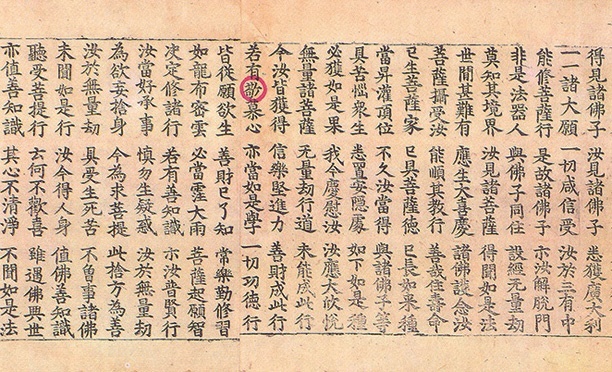 得見諸佛子 汝見諸佛子 悉獲廣大利
一一諸大願 一切咸信受 汝於三有中
能修菩薩行 是故諸佛子 示汝解脫門
非是法器人 與佛子同住 設經无量劫
莫知其境界 汝見諸菩薩 得聞如是法
世間甚難有 應生大喜慶 諸佛護念汝
菩薩攝受汝 能順其教行 善哉住壽命
已生菩薩家 已具菩薩德 已長如來種
當昇灌頂位 不久汝當得 與諸佛子等
見苦惱衆生 悉置安隱處 如下如是種
必獲如是果 我今慶慰汝 汝應大欣悅
無量諸菩薩 无量劫行道 未能成此行
今汝皆獲得 信樂堅進力 善財成此行
若有慕心 亦當如是學 一切功德行
皆從願欲生 善財已了知 常樂勤修習
如龍布密雲 必當霔大雨 菩薩起願智
決定修諸行 若有善知識 示汝普賢行
汝當好承事 慎勿生疑惑 汝於無量劫
為欲妄捨身 今為求菩提 此捨方為善
汝於無量劫 具受生死苦 不曾事諸佛
未聞如是行 汝今得人身 值佛善知識
聽受菩提行 云何不歡喜 雖遇佛興世
亦值善知識 其心不清淨 不聞如是法